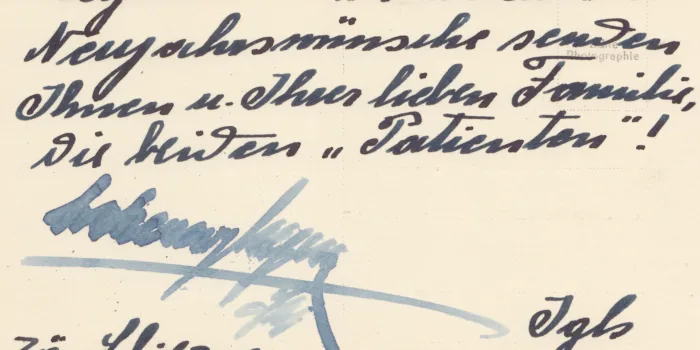 Neujahrswünsche senden
Photographie
Ihnen u. Ihrer lieben Familie,
die beiden „Patienten"!
Igls